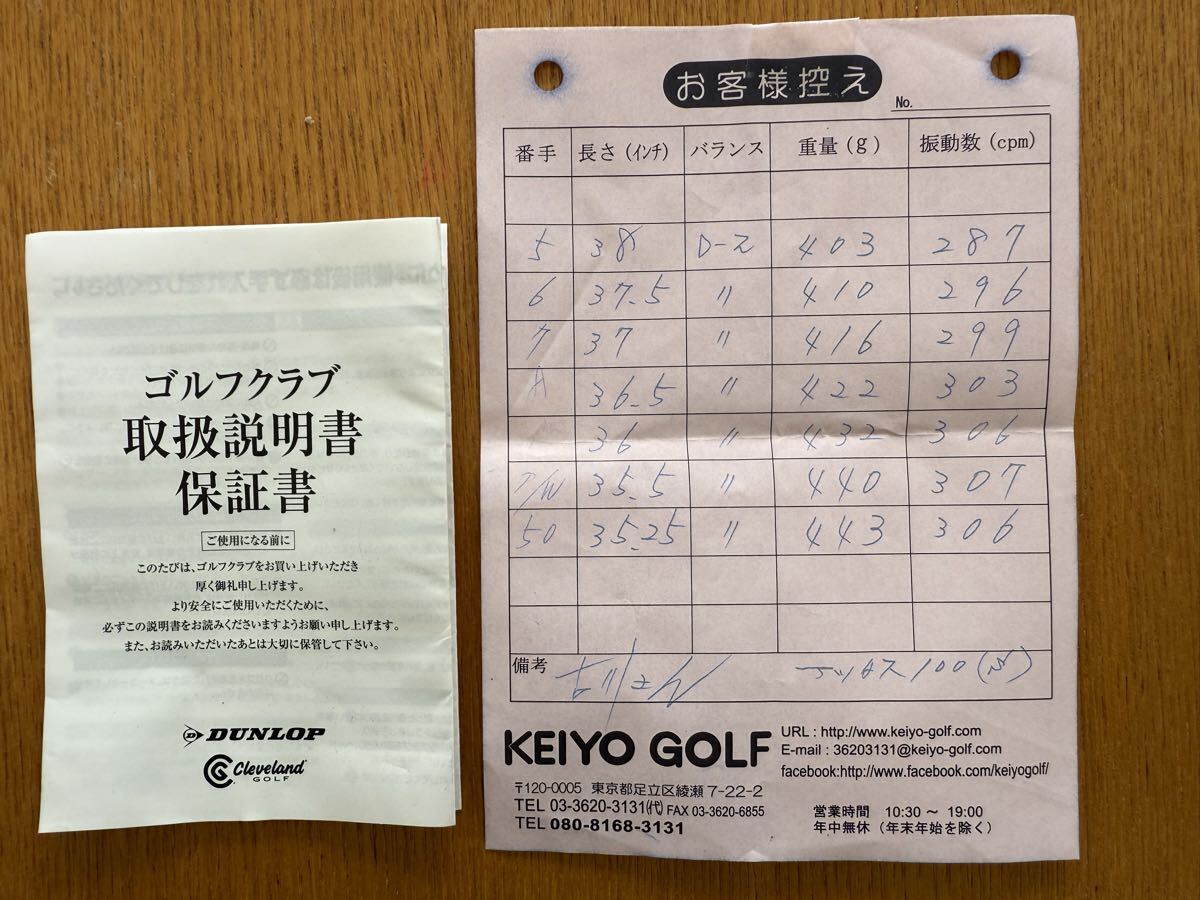 ゴルフクラブ
取扱説明書
保証書
ご使用になる前に
このたびは、ゴルフクラブをお買い上げいただき
厚く御礼申し上げます。
より安全にご使用いただくために、
必ずこの説明書をお読みくださいますようお願い申し上げます。
また、お読みいただいたあとは大切に保管して下さい。
DUNLOP
Cleveland
GOLF
お客様控え
No.
番手 長さ(インチ) バランス 重量(g) 振動数(cpm)
5 38 D-2 403 287
6 37.5 〃 410 296
7 37 〃 416 299
36.5 〃 422 303
36 〃 432 306
P/W 35.5 〃 440 307
50 35.25 〃 443 306
備考 100
KEIYO GOLF
URL : http://www.keiyo-golf.com
E-mail : 36203131@keiyo-golf.com
facebook:http://www.facebook.com/keiyogolf/
〒120-0005 東京都足立区綾瀬7-22-2
TEL 03-3620-3131(代) FAX 03-3620-6855
TEL 080-8168-3131
営業時間 10:30 〜 19:00
年中無休(年末年始を除く)